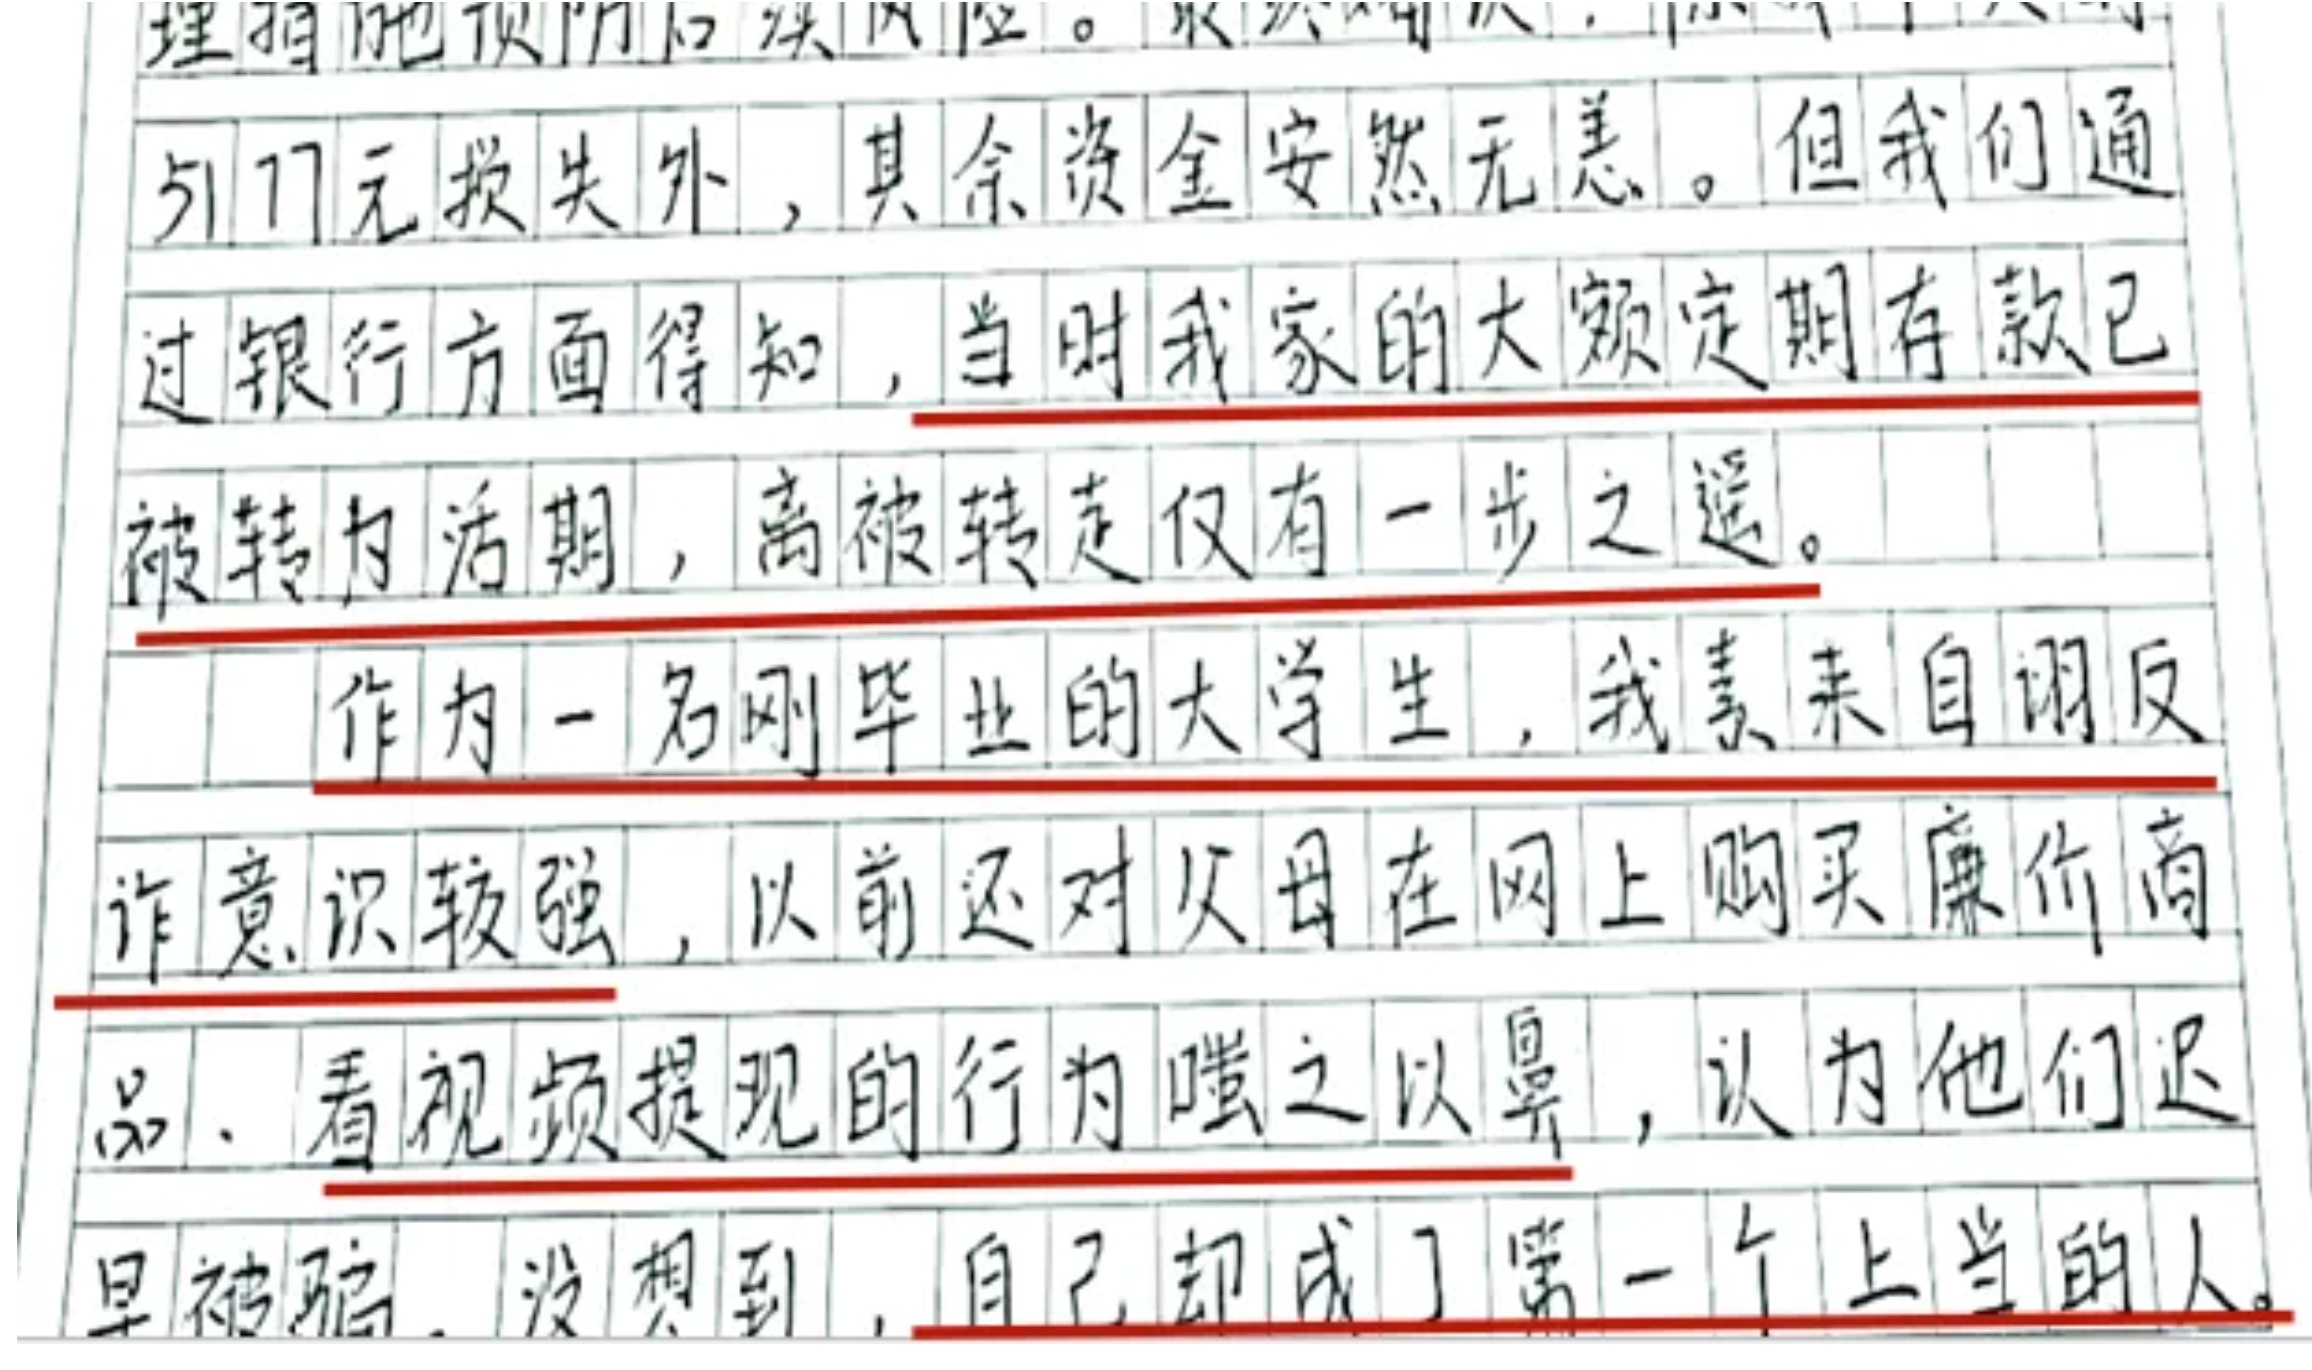 理措施预防后续风险。最终确认，除
5177元损失外，其余资金安然无恙。但我们通
过银行方面得知，当时我家的大额定期存款已
被转为活期，离被转走仅有一步之遥。
作为一名刚毕业的大学生，我素来自诩反
诈意识较强，以前还对父母在网上购买廉价商
品、看视频提现的行为嗤之以鼻，认为他们迟
早被骗，没想到，自己却成了第一个上当的人。